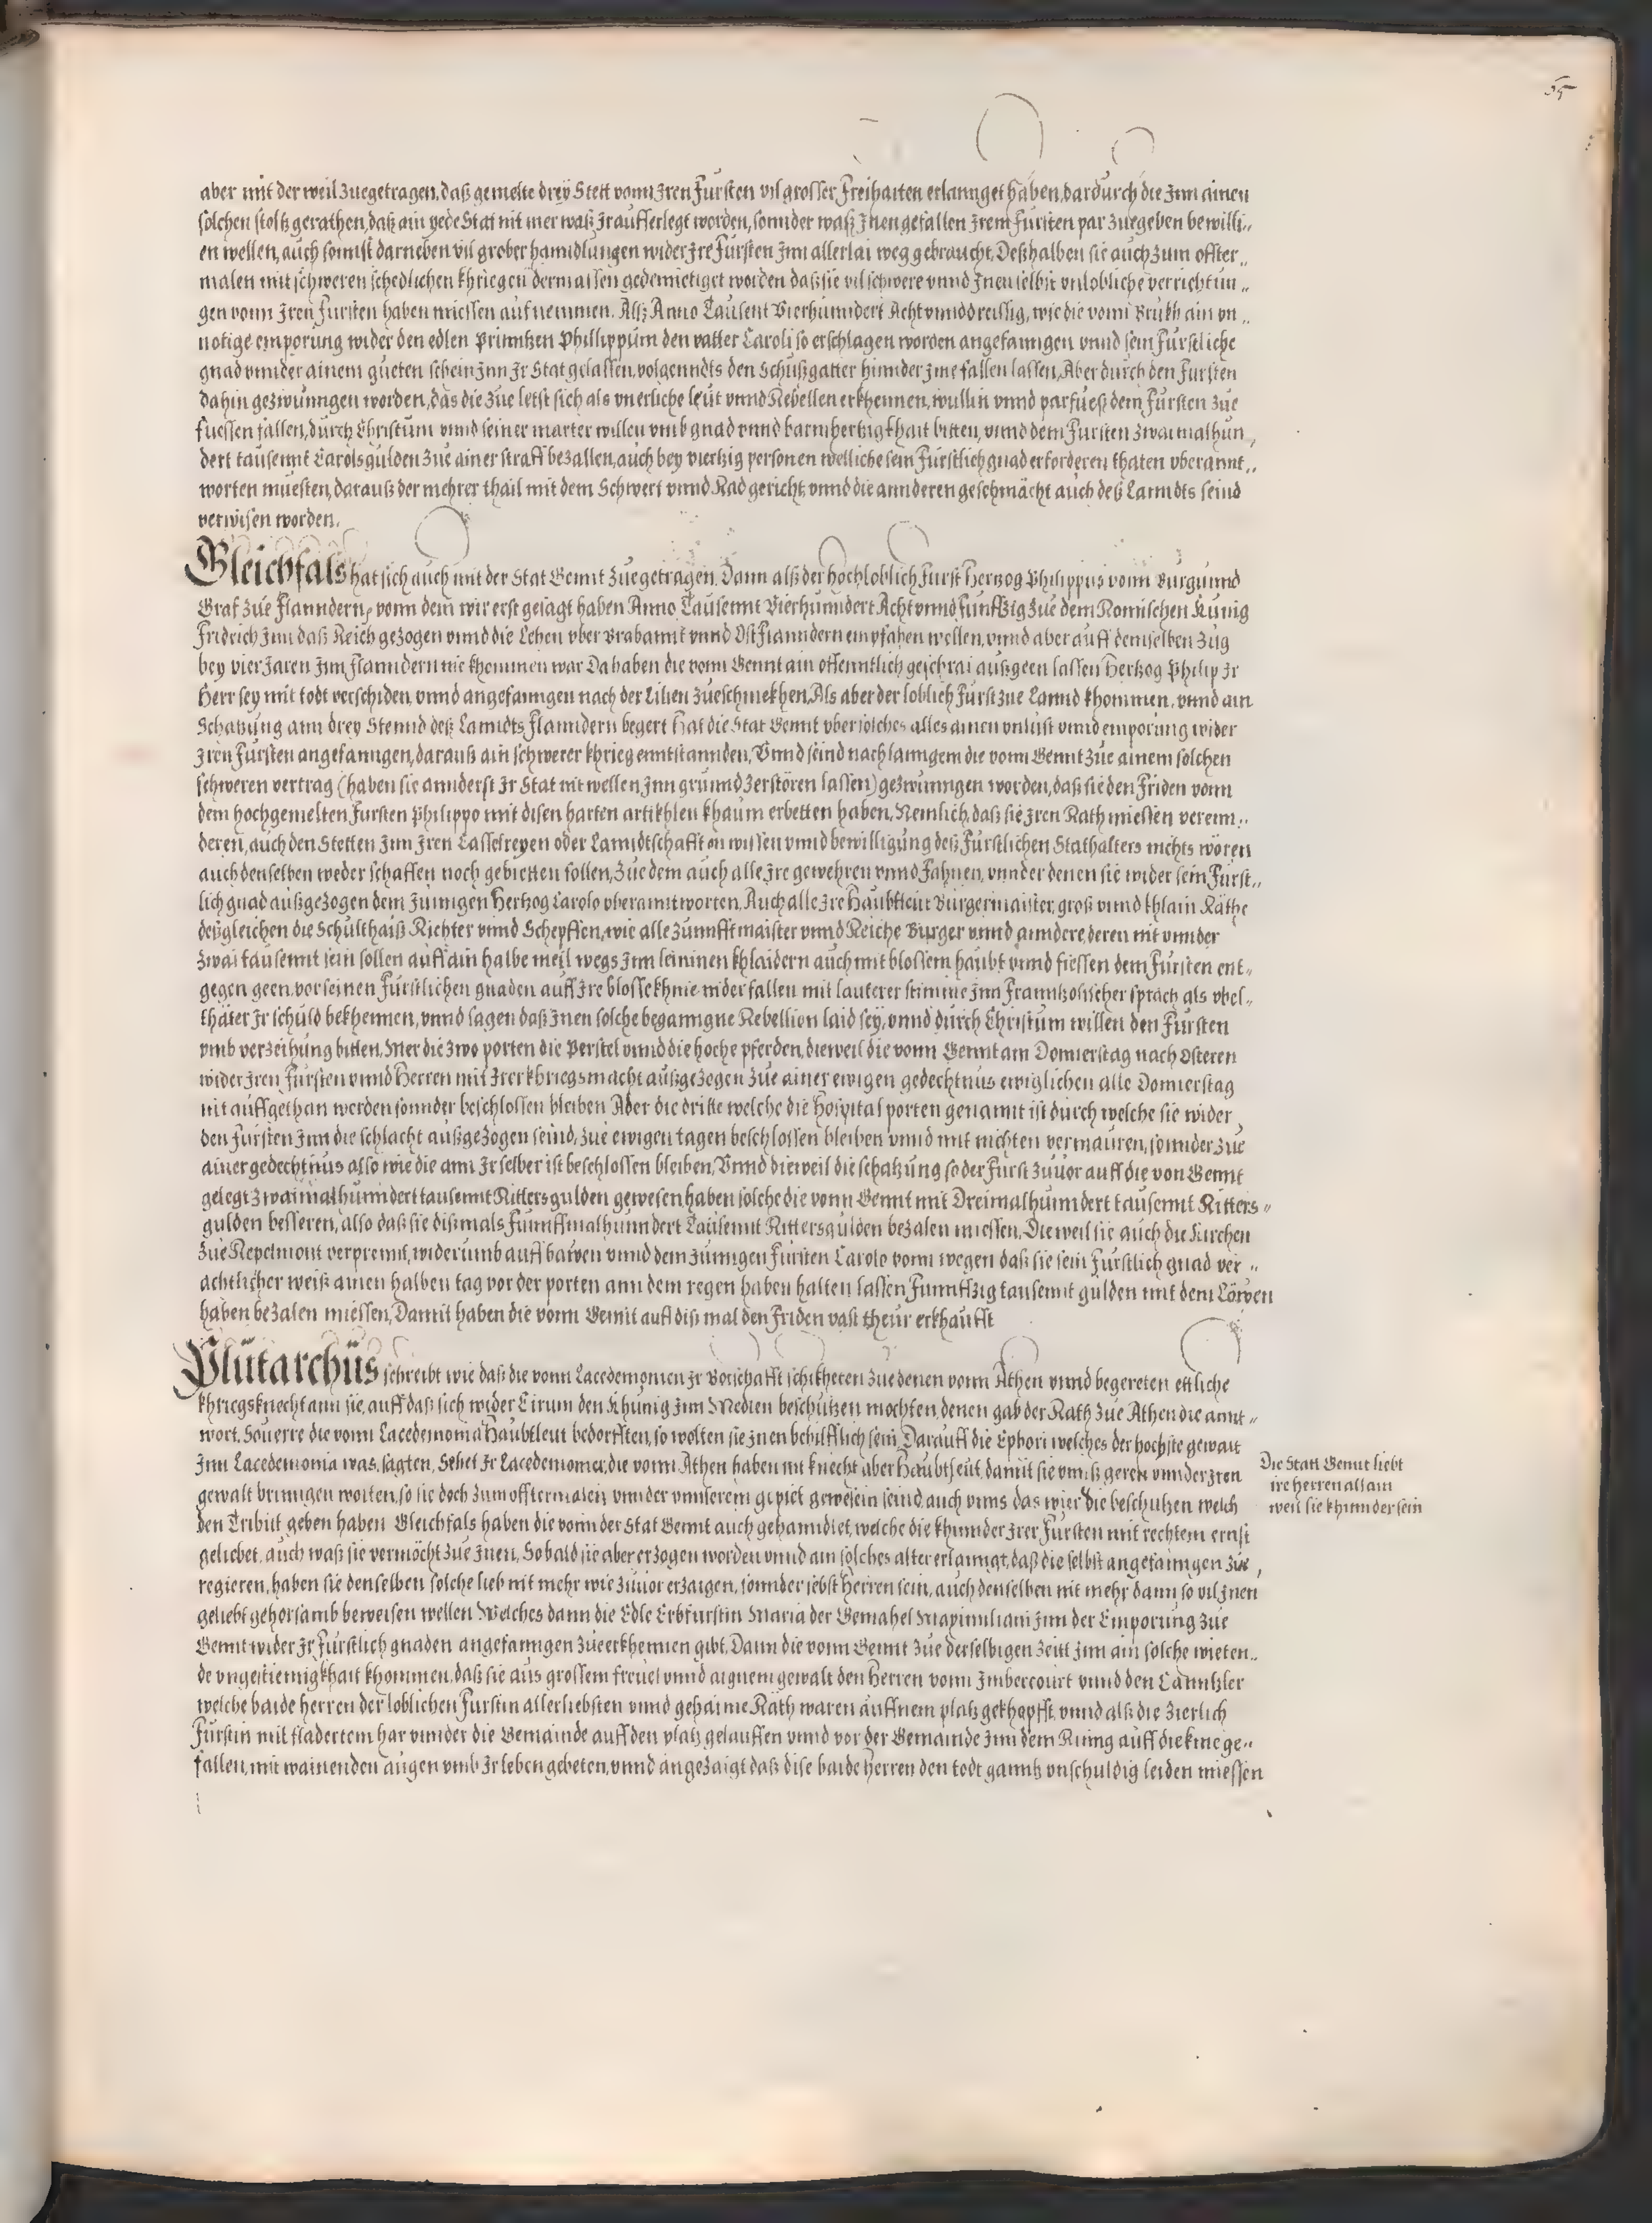 55
aber mit der weil zuegetragen, daß gemelte dreÿ Stett vonn Iren Fürsten vil grosser Freihaiten erlannget haben, dardurch die Inn ainen
solchen stoltz gerathen, daß ain yede Stat nit mer waß Ir aufferlegt worden, sonnder waß Inen gefallen Irem Fürsten par zuegeben bewilli„
en wellen, auch sonnst darneben vil grober hanndlungen wider Ire Fürsten Inn allerlai weg gebraucht, Deßhalben sie auch zum offter„
malen mit schweren schedlichen khriegen dermassen gedemietiget worden daß sie vil schwere vnnd Inen selbst vnlobliche verrichtun„
gen vonn Iren Fürsten haben miessen aufnemmen. Alß Anno Tausent Vierhunndert Acht vnnd dreissig, wie die vonn Brukh ain vn„
notige emporung wider den edlen Printzen Phillippum den vatter Caroli so erschlagen worden angefanngen vnnd sein Fürstliche
gnad vnnder ainem gueten schein Inn Ir Stat gelassen, volgenndts den Schußgatter hinnder Ime fallen lassen, Aber durch den Fürsten
dahin gezwunngen worden, das die zue letst sich als vnerliche leüt vnnd Rebellen erkhennen, wullin vnnd parfueß dem Fürsten zue
fuessen fallen, durch Christum vnnd seiner marter willen vmb gnad vnnd barmhertzigkhait bitten, vnnd dem Fürsten zwaimalhun„
dert tausennt Carolsgulden zue ainer straff bezallen, auch bey viertzig personen welliche sein Fürstlich gnad erforderen thaten vberannt„
worten muesten, darauß der mehrer thail mit dem Schwert vnnd Rad gericht, vnnd die annderen geschmächt auch deß Lanndts seind
verwisen worden.
Gleichfals hat sich auch mit der Stat Gennt zuegetragen, Dann alß der hochloblich Fürst Hertzog Philippus vonn Burgunnd
Graf zue Flanndern, vonn dem wir erst gesagt haben Anno Tausennt Vierhunndert Acht vnnd funffzig zue dem Romischen Kunig
Fridrich Inn daß Reich gezogen vnnd die Lehen vber Brabannt vnnd Ost Flanndern empfahen wellen, vnnd aber auff demselben zug
bey vier Jaren Inn Flanndern nie khommen war Da haben die vonn Gennt ain offenntlich geschrai außgeen lassen Hertzog Philip Ir
Herr sey mit todt verschiden, vnnd angefanngen nach der Lilien zueschmekhen, Als aber der loblich Fürst zue Lannd khommen, vnnd ain
Schatzung ann drey Stennd deß Lanndts Flanndern begert Hat die Stat Gennt vber solches alles ainen vnlust vnnd emporung wider
Iren Fürsten angefanngen, darauß ain schwerer khrieg enntstannden, Vnnd seind nach lanngem die vonn Gennt zue ainem solchen
schweren vertrag (haben sie annderst Ir Stat nit wellen Inn grunnd zerstören lassen) gezwunngen worden, daß sie den Friden vonn
dem hochgemelten Fürsten Philippo mit disen harten artikhlen khaum erbetten haben, Nemlich, daß sie Iren Rath miessen verenn„
deren, auch den Stetten Inn Iren Casselreyen oder Lanndtschafft on wissen vnnd bewilligung deß Fürstlichen Stathalters nichts wören
auch denselben weder schaffen noch gebietten sollen, Zue dem auch alle Ire gewehren vnnd Fahnen, vnnder denen sie wider sein Fürst„
lich gnad außgezogen dem Junngen Hertzog Carolo vberanntworten. Auch alle Ire Haubtleüt Burgermaister, groß vnnd khlain Räthe
deßgleichen die Schulthaiß Richter vnnd Schepffen, wie alle zunnfftmaister vnnd Reiche Burger vnnd anndere, deren nit vnnder
zwai tausennt sein sollen auff ain halbe meil wegs Inn leininen khlaidern auch mit blossem haubt vnnd fiessen dem Fürsten ent„
gegen geen, vor seinen Fürstlichen gnaden auff Ire blosse khnie niderfallen mit lauterer stimme Inn Franntzosischer sprach als vbel„
thäter Ir schuld bekhennen, vnnd sagen daß Inen solche beganngne Rebellion laid sey, vnnd durch Christum willen den Fürsten
vmb verzeihung bitten, Mer die zwo porten die Perstel vnnd die hoche pferden, dieweil die vonn Gennt am Donnerstag nach Osteren
wider Iren Fürsten vnnd Herren mit Irer khriegsmacht außgezogen zue ainer ewigen gedechtnus ewiglichen alle Donnerstag
nit auffgethan werden sonnder beschlossen bleiben Aber die dritte welche die Hospital porten genannt ist durch welche sie wider
den Fürsten Inn die schlacht außgezogen seind, zue ewigen tagen beschlossen bleiben vnnd mit nichten vermauren, sonnder zue
ainer gedechtnus also wie die ann Ir selber ist beschlossen bleiben, Vnnd dieweil die schatzung so der Fürst zuuor auff die von Gennt
gelegt zwaimalhunndert tausennt Rittersgulden gewesen haben solche die vonn Gennt mit Dreimalhunndert tausennt Ritters„
gulden besseren, also daß sie dißmals Funnffmalhunndert Tausennt Rittersgulden bezalen miessen, Dieweil sie auch die Kirchen
zue Repelmont verprennt, widerumb auffbawen vnnd dem Junngen Fürsten Carolo vonn wegen daß sie sein Fürstlich gnad ver„
achtlicher weiß ainen halben tag vor der porten ann dem regen haben halten lassen Funnffzig tausennt gulden mit dem Löwen
haben bezalen miessen, Damit haben die vonn Gennt auff diß mal den Friden vast theur erkhaufft
Plutarchus schreibt wie daß die vonn Lacedemonien Ir Botschafft schikheten zue denen vonn Athen vnnd begereten ettliche
khriegsknecht ann sie, auff daß sich wider Cirum den Khunig Inn Medien beschutzen mochten, denen gab der Rath zue Athen die annt„
wort, Souerre die vonn Lacedemonia Haubtleut bedorfften, so wolten sie Inen behilfflich sein, Darauff die Ephori welches der hochste gewalt
Inn Lacedemonia was, sagten, Sehet Ir Lacedemonier, die vonn Athen haben nit knecht aber Haubtleut, damit sie vnnß geren vnnder Iren
gewalt brinngen wolten, so sie doch zum offtermalen vnnder vnnserem gepiet gewesein seind, auch vnns das wier die beschutzen welch
den Tribut geben haben Gleichfals haben die vonn der Stat Gennt auch gehanndlet, welche die khinnder Irer Fürsten mit rechtem ernst
geliebet, auch waß sie vermöcht zue Inen, Sobald sie aber erzogen worden vnnd ain solches alter erlanngt, daß die selbst angefanngen zue
regieren, haben sie denselben solche lieb nit mehr wie zuuor erzaigen, sonnder selbst Herren sein, auch denselben nit mehr dann so vil Inen
geliebt gehorsamb beweisen wellen Welches dann die Edle Erbfurstin Maria der Gemahel Maximiliani Inn der Emporung zue
Gennt wider Ir Fürstlich gnaden angefanngen zueerkhennen gibt, Dann die vonn Gennt zue derselbigen zeitt Inn ain solche wieten„
de vngestiemigkhait khommen, daß sie aus grossem freuel vnnd aignem gewalt den Herren vonn Imbercourt vnnd den Canntzler
welche baide herren der loblichen Furstin allerliebsten vnnd gehaime Räth waren auffnem platz gekhopfft, vnnd alß die zierlich
Fürstin mit fladertem har vnnder die Gemainde auff den platz gelauffen vnnd vor der Gemainde Inn dem Rinng auff die knie ge„
fallen, mit wainenden augen vmb Ir leben gebeten, vnnd angezaigt daß dise baide Herren den todt ganntz vnschuldig leiden miessen
Die Statt Gennt liebt
ire herren allain
weil sie khinnder sein